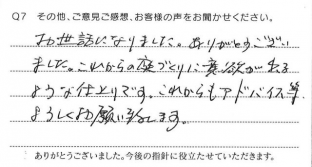 Q7 その他、ご意見ご感想、お客様の声をお聞かせください。
お世話になりました。ありがとうござい
ました。これからの庭づくりに意欲が出る
ような仕上りです。これからもアドバイス等
よろしくお願い致します。
ありがとうございました。今後の指針に役立たせていただきます。